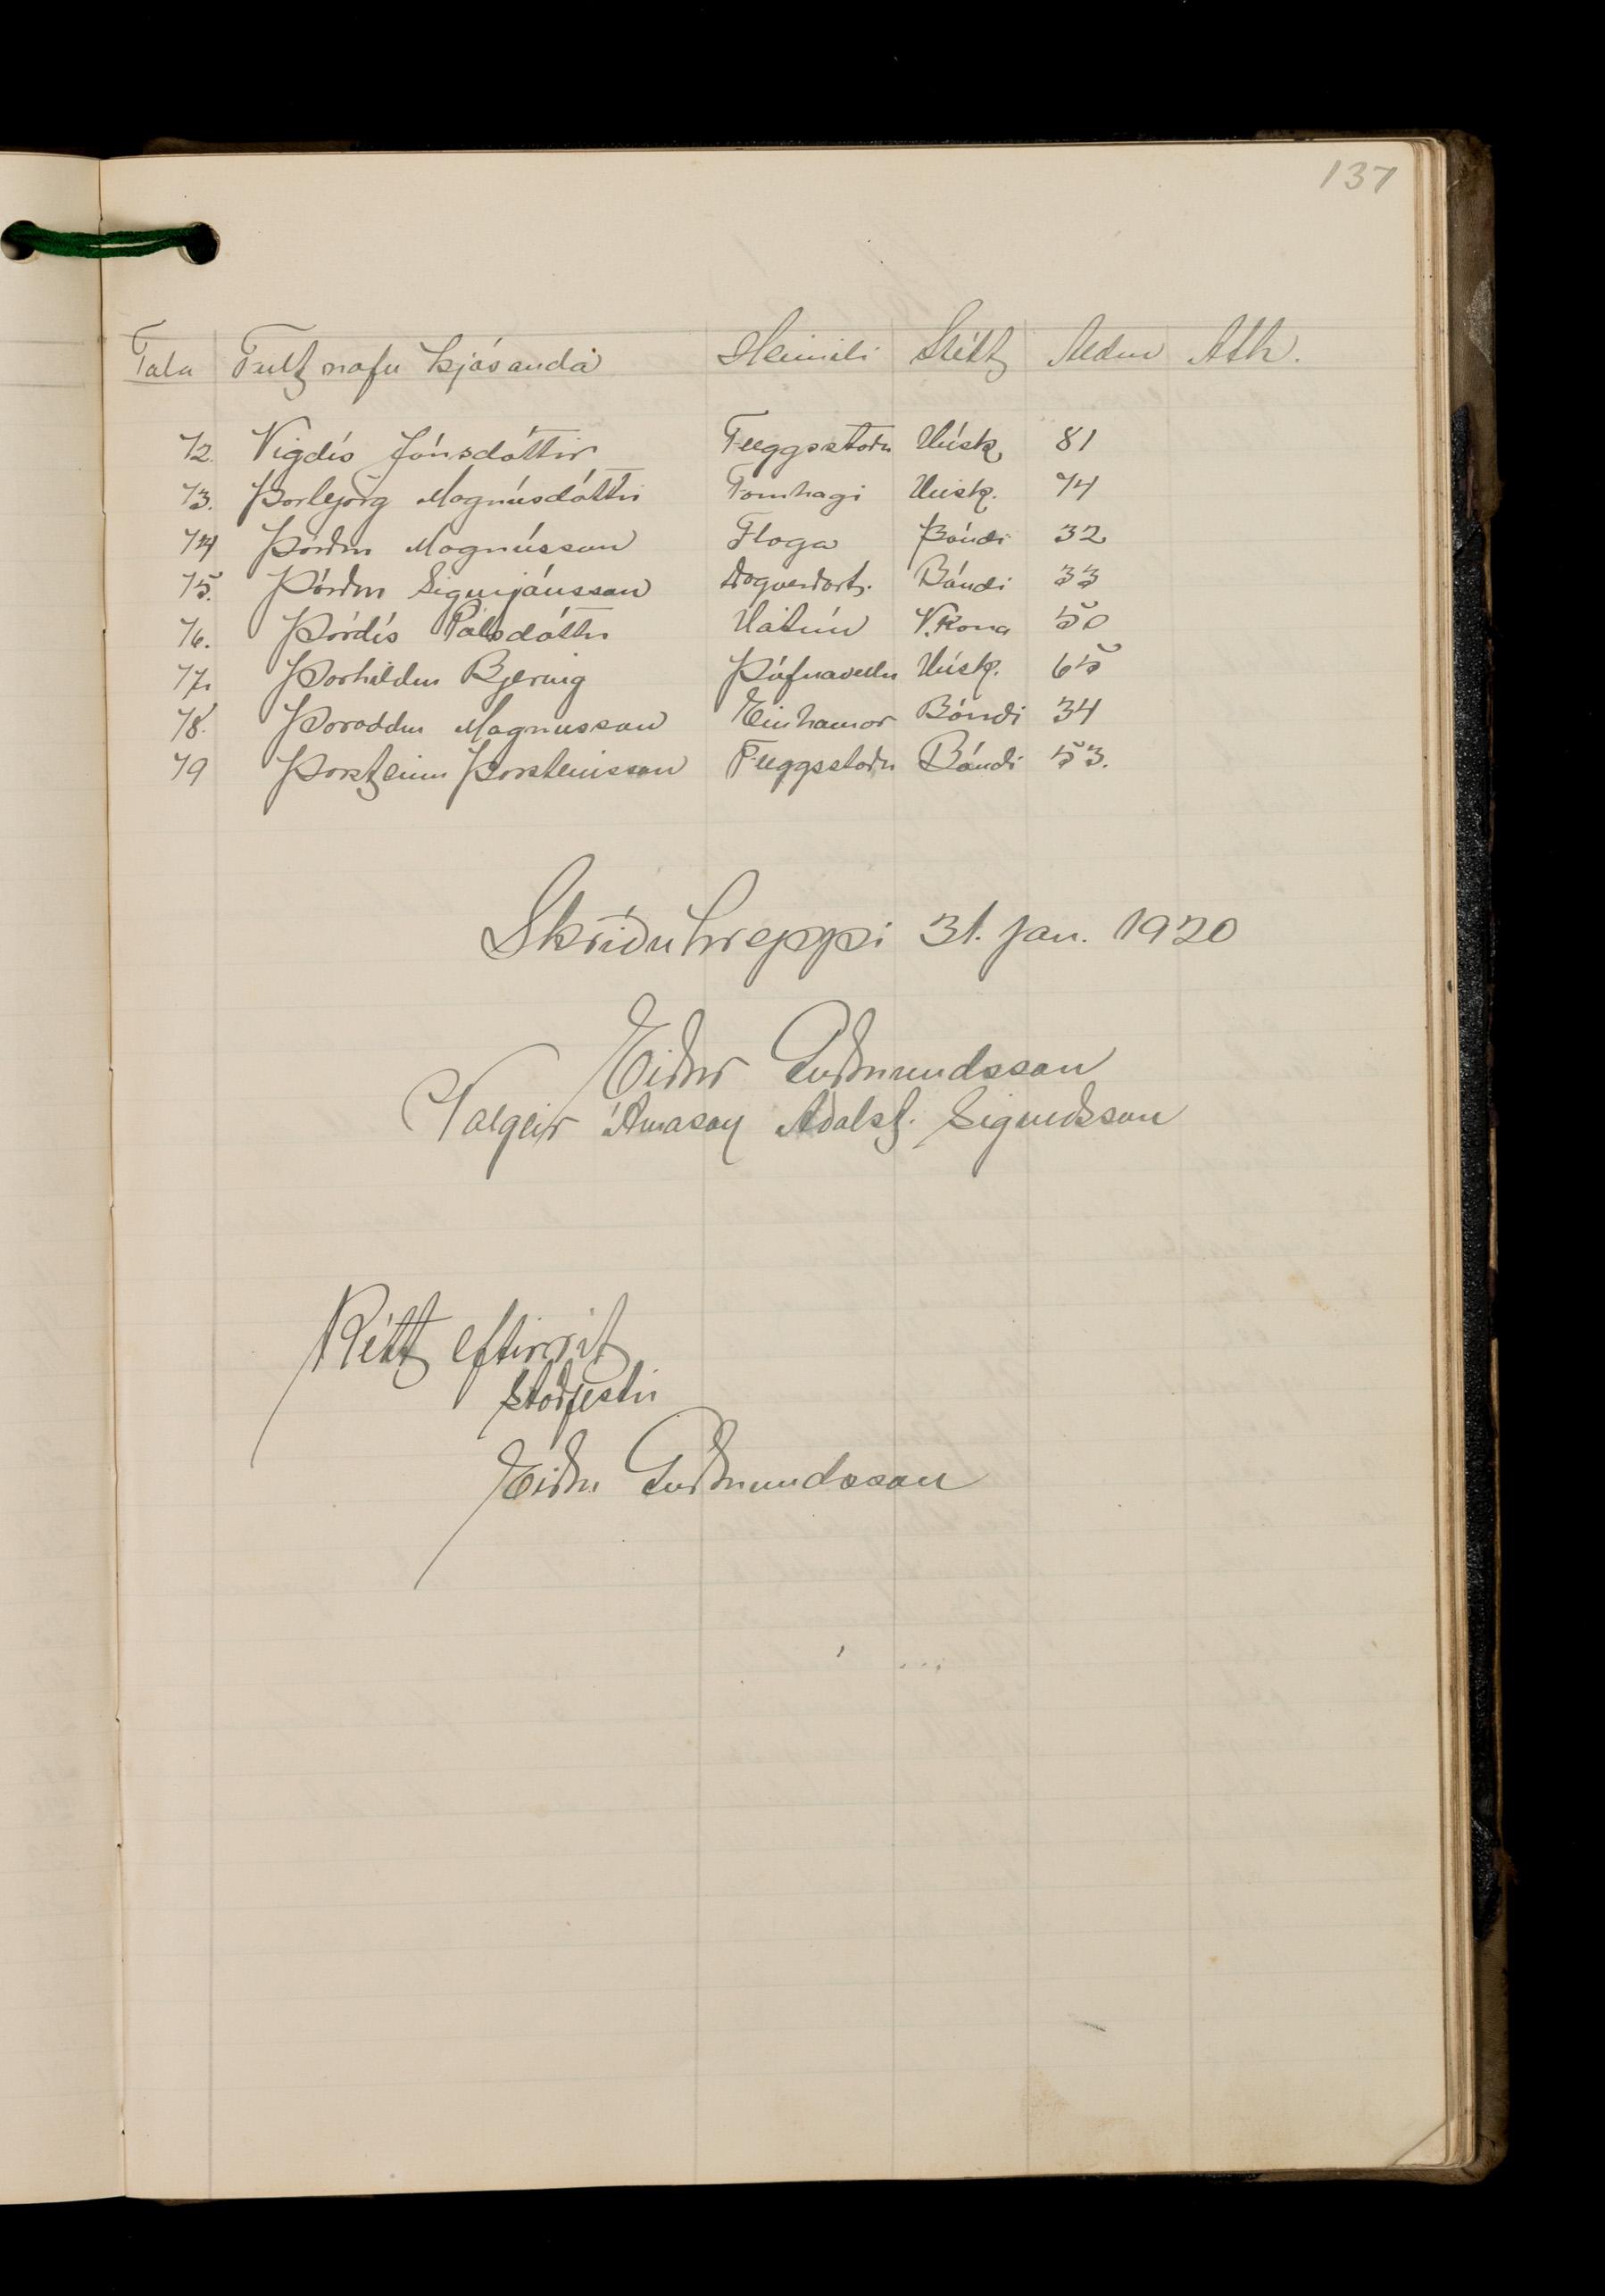 137
Tala Fullt nafn kjósanda Heimili Stétt Aldur Ath.
72. Vigdís Jónsdóttir Flöggustaðir Húsk. 81
73. Þorbjörg Magnúsdóttir Fornhagi Húsk. 74
74 Þórður Magnússon Flaga Bóndi 32
75. Þórður Sigurjónsson Dagverðart. Bóndi 33
76. Þórdís Pálsdóttir Hátún V.kona 50
77. Þorhildur Bjering Þúfnavellir Húsk. 65
78. Þoroddur Magnusson Einhamar Bóndi 34
79 Þorsteinn Þorsteinsson Flöggustaðir Bóndi 53.
Skriðuhreppi 31. jan. 1920
Eiður Guðmundsson
Valgeir Árnason Aðalst. Sigurðsson
Rétt eftirrit
staðfestir
Eiður Guðmundsson